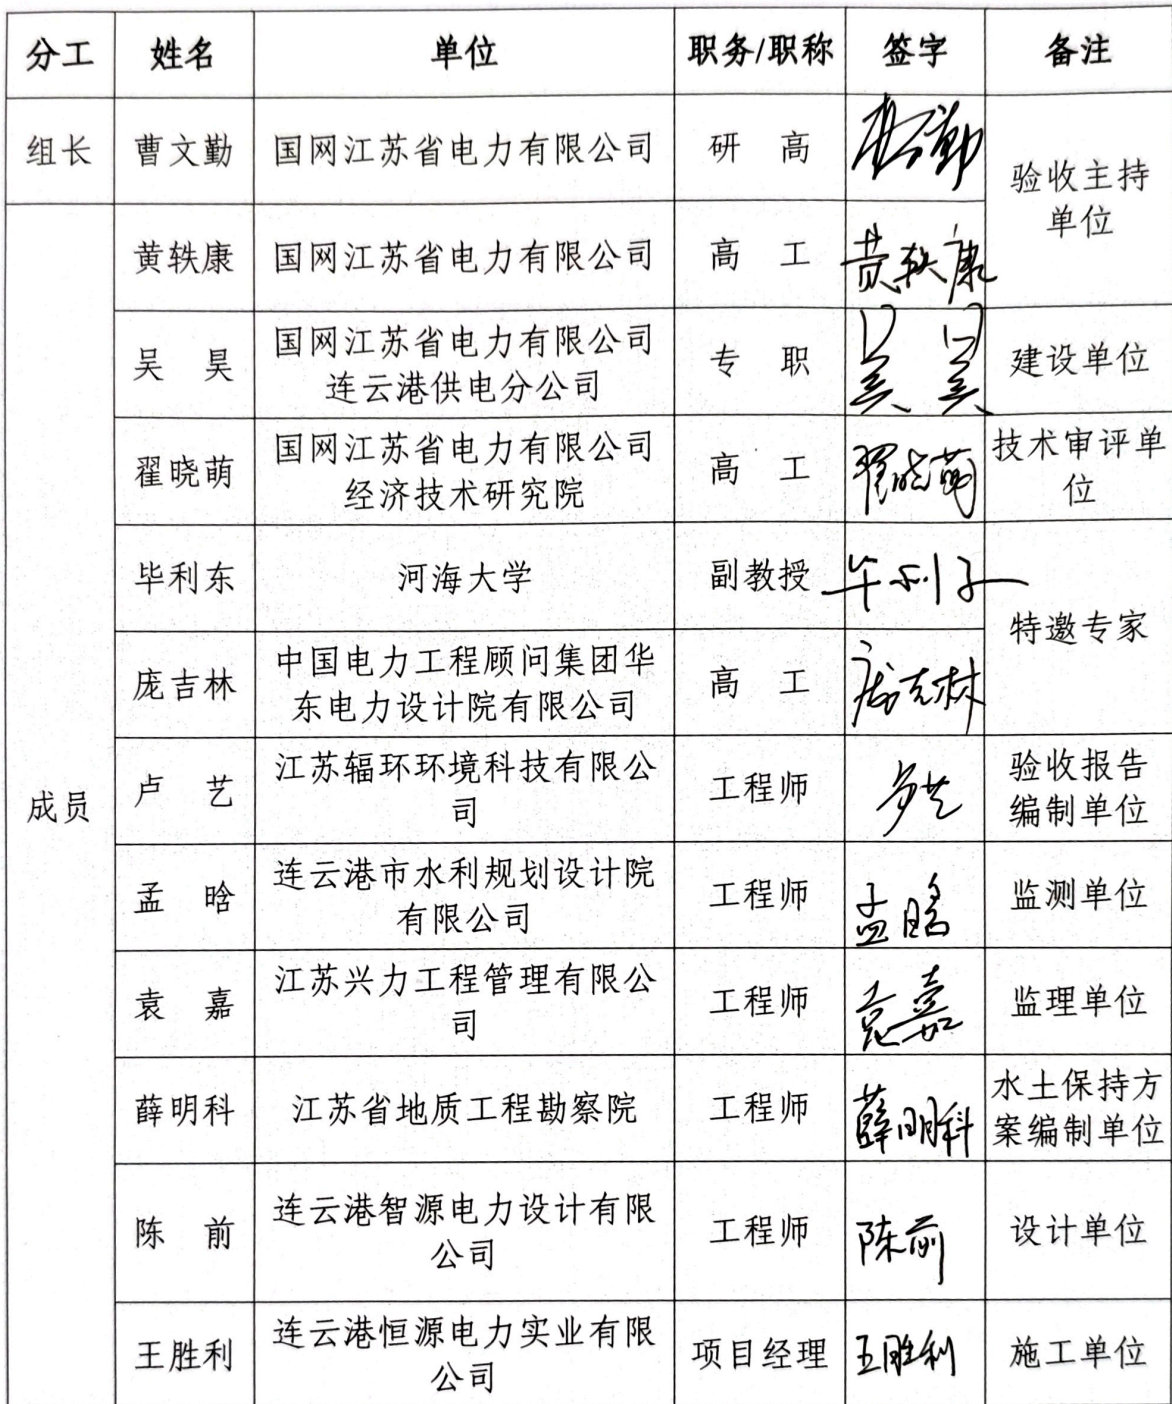 分工 姓名 单位 职务/职称 签字 备注
组长 曹文勤 国网江苏省电力有限公司 研 高 曹文勤 验收主持
单位
成员 黄轶康 国网江苏省电力有限公司 高 工 黄轶康
吴 昊 国网江苏省电力有限公司
连云港供电分公司 专 职 吴 昊 建设单位
翟晓萌 国网江苏省电力有限公司
经济技术研究院 高 工 翟晓萌 技术审评单
位
毕利东 河海大学 副教授 毕利东 特邀专家
庞吉林 中国电力工程顾问集团华
东电力设计院有限公司 高 工 庞吉林
卢 艺 江苏辐环环境科技有限公
司 工程师 卢艺 验收报告
编制单位
孟 晗 连云港市水利规划设计院
有限公司 工程师 孟晗 监测单位
袁 嘉 江苏兴力工程管理有限公
司 工程师 袁嘉 监理单位
薛明科 江苏省地质工程勘察院 工程师 薛明科 水土保持方
案编制单位
陈 前 连云港智源电力设计有限
公司 工程师 陈前 设计单位
王胜利 连云港恒源电力实业有限
公司 项目经理 王胜利 施工单位